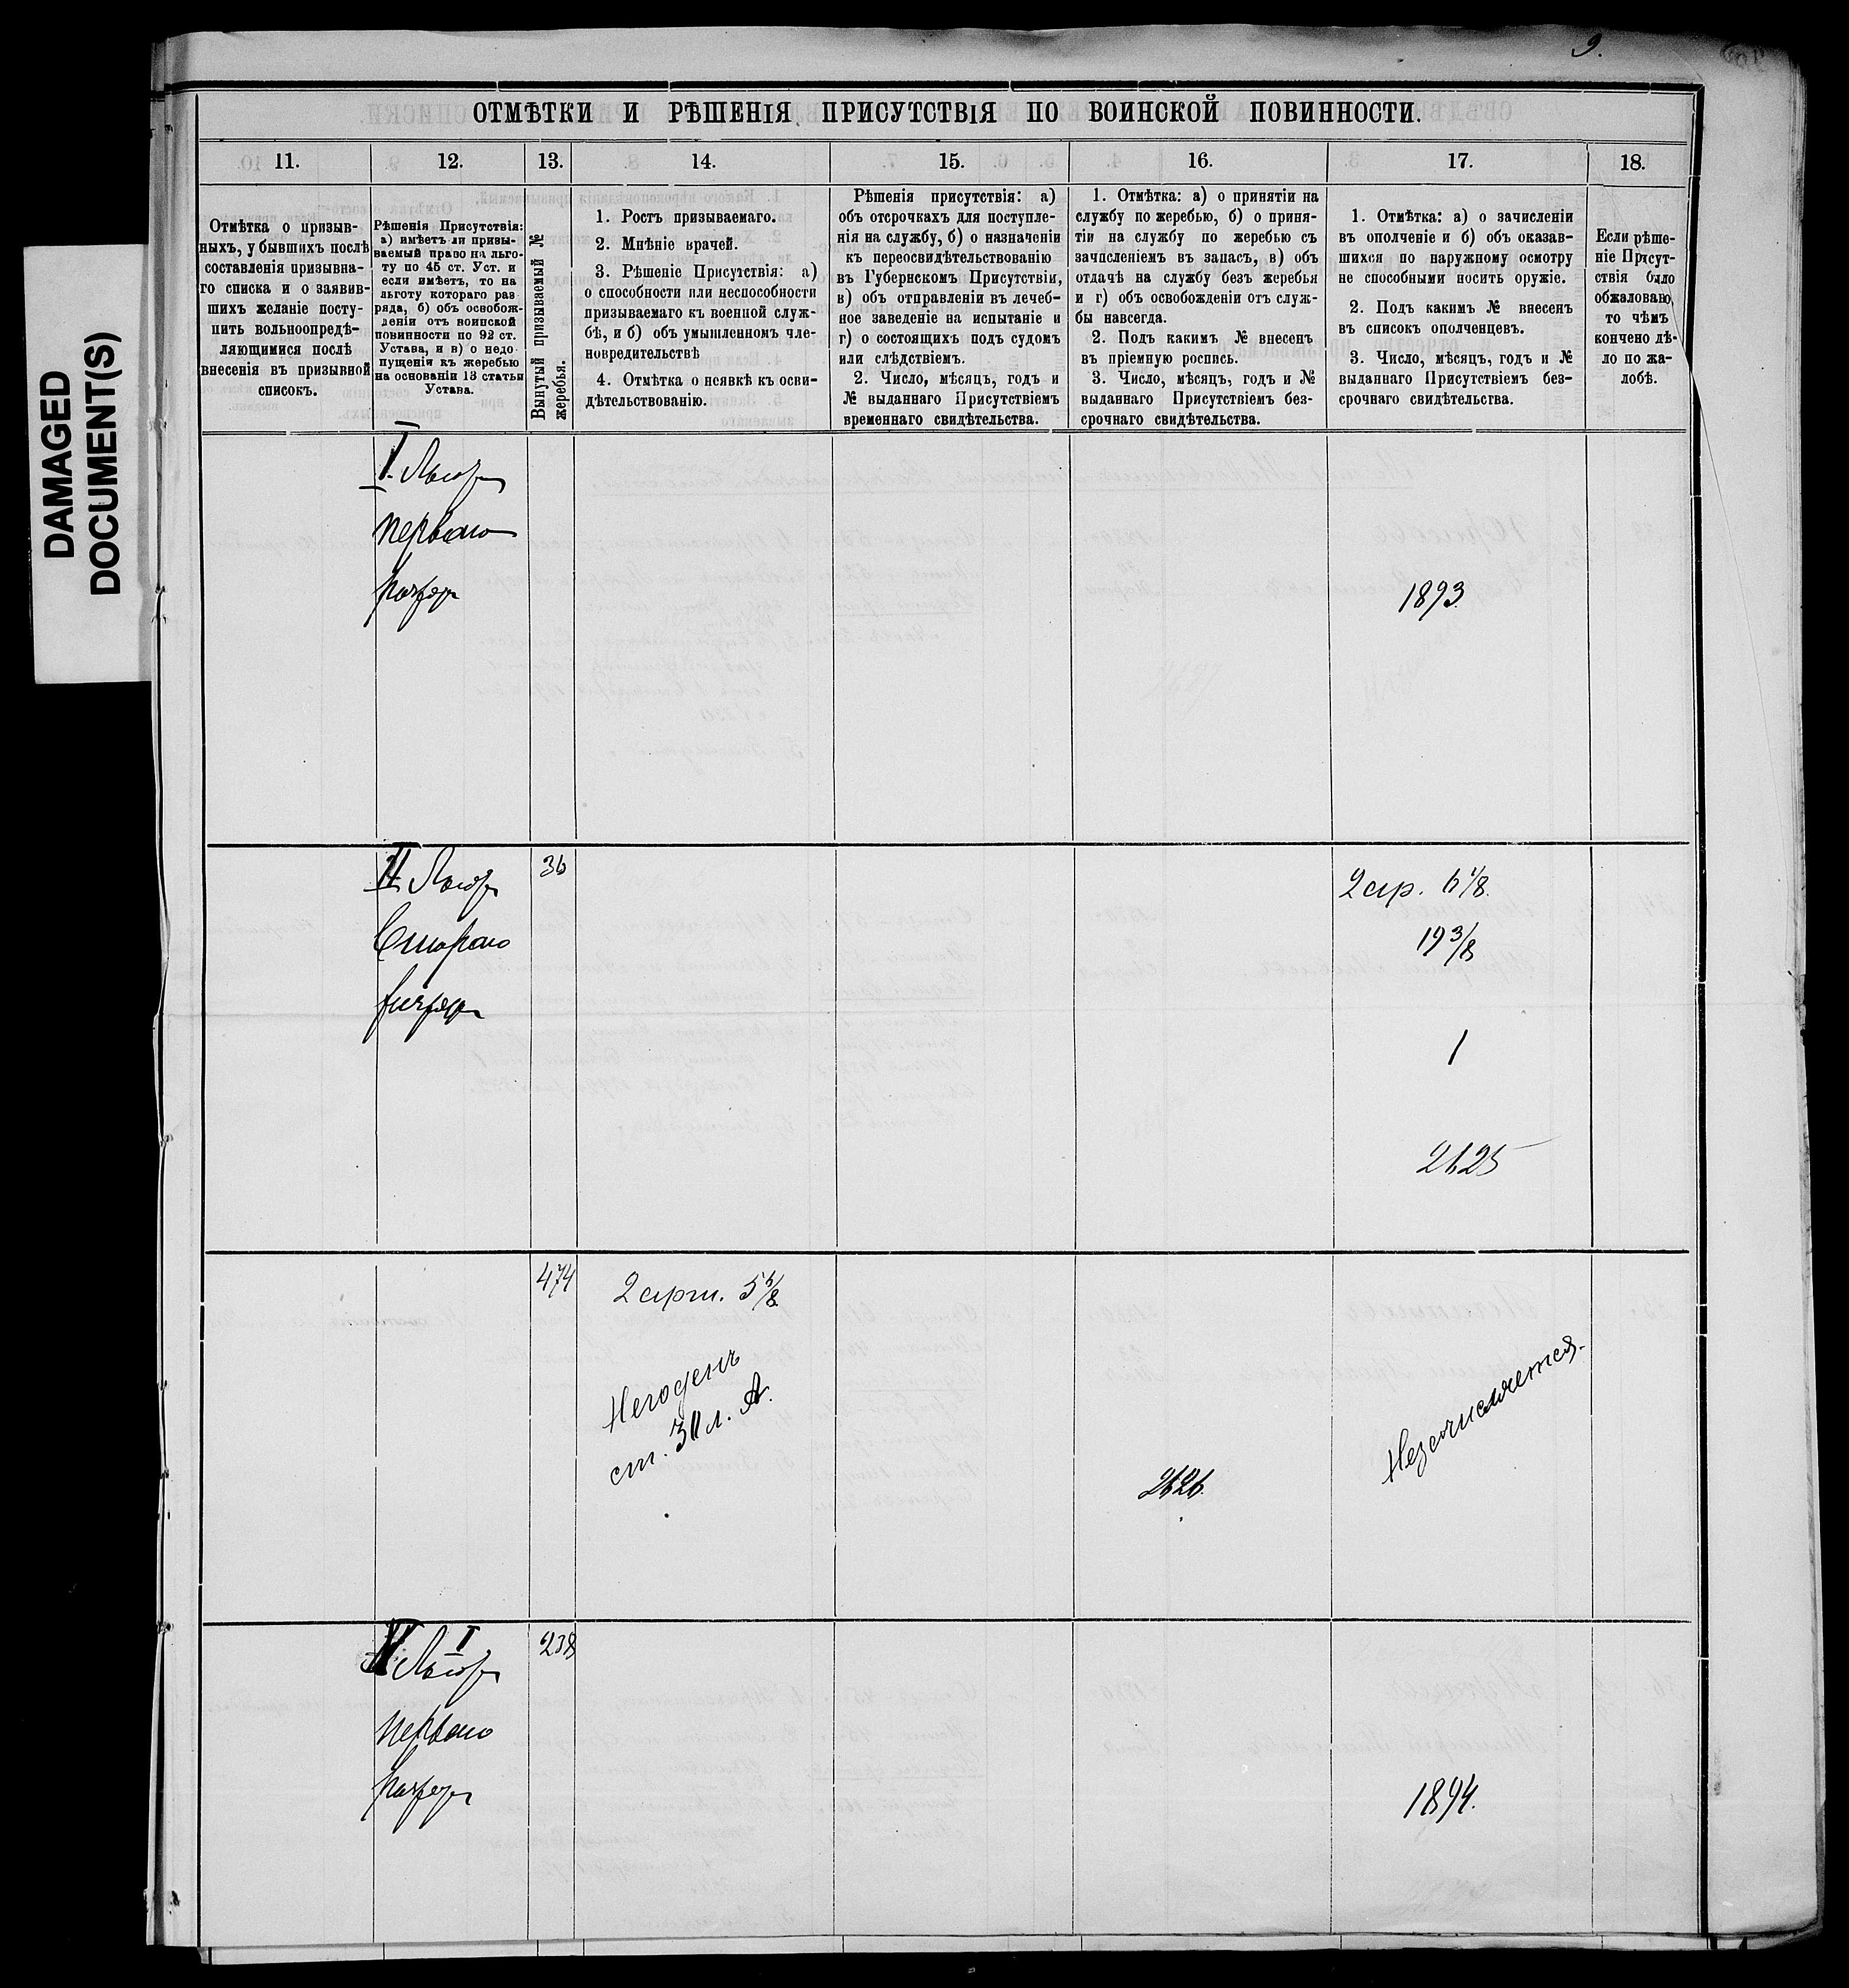 9.
DAMAGED
DOCUMENT(S)
ОТМѢТКИ И РѢШЕНІЯ ПРИСУТСТВІЯ ПО ВОИНСКОЙ ПОВИННОСТИ.
11.
12.
13.
14.
15.
16.
17.
18.
Отмѣтка о призыв-
ныхъ, у бывшихъ послѣ
составленія призывна-
го списка и о заявив-
шихъ желаніе посту-
пить вольноопредѣ-
ляющимися послѣ
внесенія въ призывной
списокъ.
Рѣшенія Присутствія:
а) имѣетъ ли призы-
ваемый право на льго-
ту по 45 ст. Уст. и
если имѣетъ, то на
льготу котораго раз
ряда, б) объ освобож-
деніи отъ воинской
повинности по 92 ст.
Устава, и в) о недо-
пущеніи къ жеребью
на основаніи 13 статьи
Устава.
Вынутый призываемый №
жеребья.
1. Ростъ призываемаго.
2. Мнѣніе врачей.
3. Рѣшеніе Присутствія: а)
о способности или неспособности
призываемаго къ военной служ-
бѣ, и б) объ умышленномъ чле-
новредительствѣ
4. Отмѣтка о неявкѣ къ осви-
дѣтельствованію.
Рѣшенія присутствія: а)
объ отсрочкахъ для поступле-
нія на службу, б) о назначеніи
къ переосвидѣтельствованію
въ Губернскомъ Присутствіи,
в) объ отправленіи въ лечеб-
ное заведеніе на испытаніе и
г) о состоящихъ подъ судомъ
или слѣдствіемъ.
2. Число, мѣсяцъ, годъ и
№ выданнаго Присутствіемъ
временнаго свидѣтельства.
1. Отмѣтка: а) о принятіи на
службу по жеребью, б) о приня-
тіи на службу по жеребью съ
зачисленіемъ въ запасъ, в) объ
отдачѣ на службу безъ жеребья
и г) объ освобожденіи отъ служ-
бы навсегда.
2. Подъ какимъ № внесенъ
въ пріемную роспись.
3. Число, мѣсяцъ, годъ и №
выданнаго Присутствіемъ без-
срочнаго свидѣтельства.
1. Отмѣтка: а) о зачисленіи
въ ополченіе и б) объ оказав-
шихся по наружному осмотру
не способными носить оружіе.
2. Подъ какимъ № внесенъ
въ списокъ ополченцевъ.
3. Число, мѣсяцъ, годъ и №
выданнаго Присутствіемъ без-
срочнаго свидѣтельства.
Если рѣше-
ніе Присут-
ствія было
обжаловано,
то чѣмъ
кончено дѣ-
ло по жа-
лобѣ.
I Льгота
перваго
разряда
1893
II Льгота
Втораго
разряда
36
2 ар. 6 1/8.
19 3/8
1
2625
474
2 арш. 5 6/8
Негоденъ
ст. 3 II л. А.
2626.
Незачисляется.
I Льгота
перваго
разряда
238
1894.